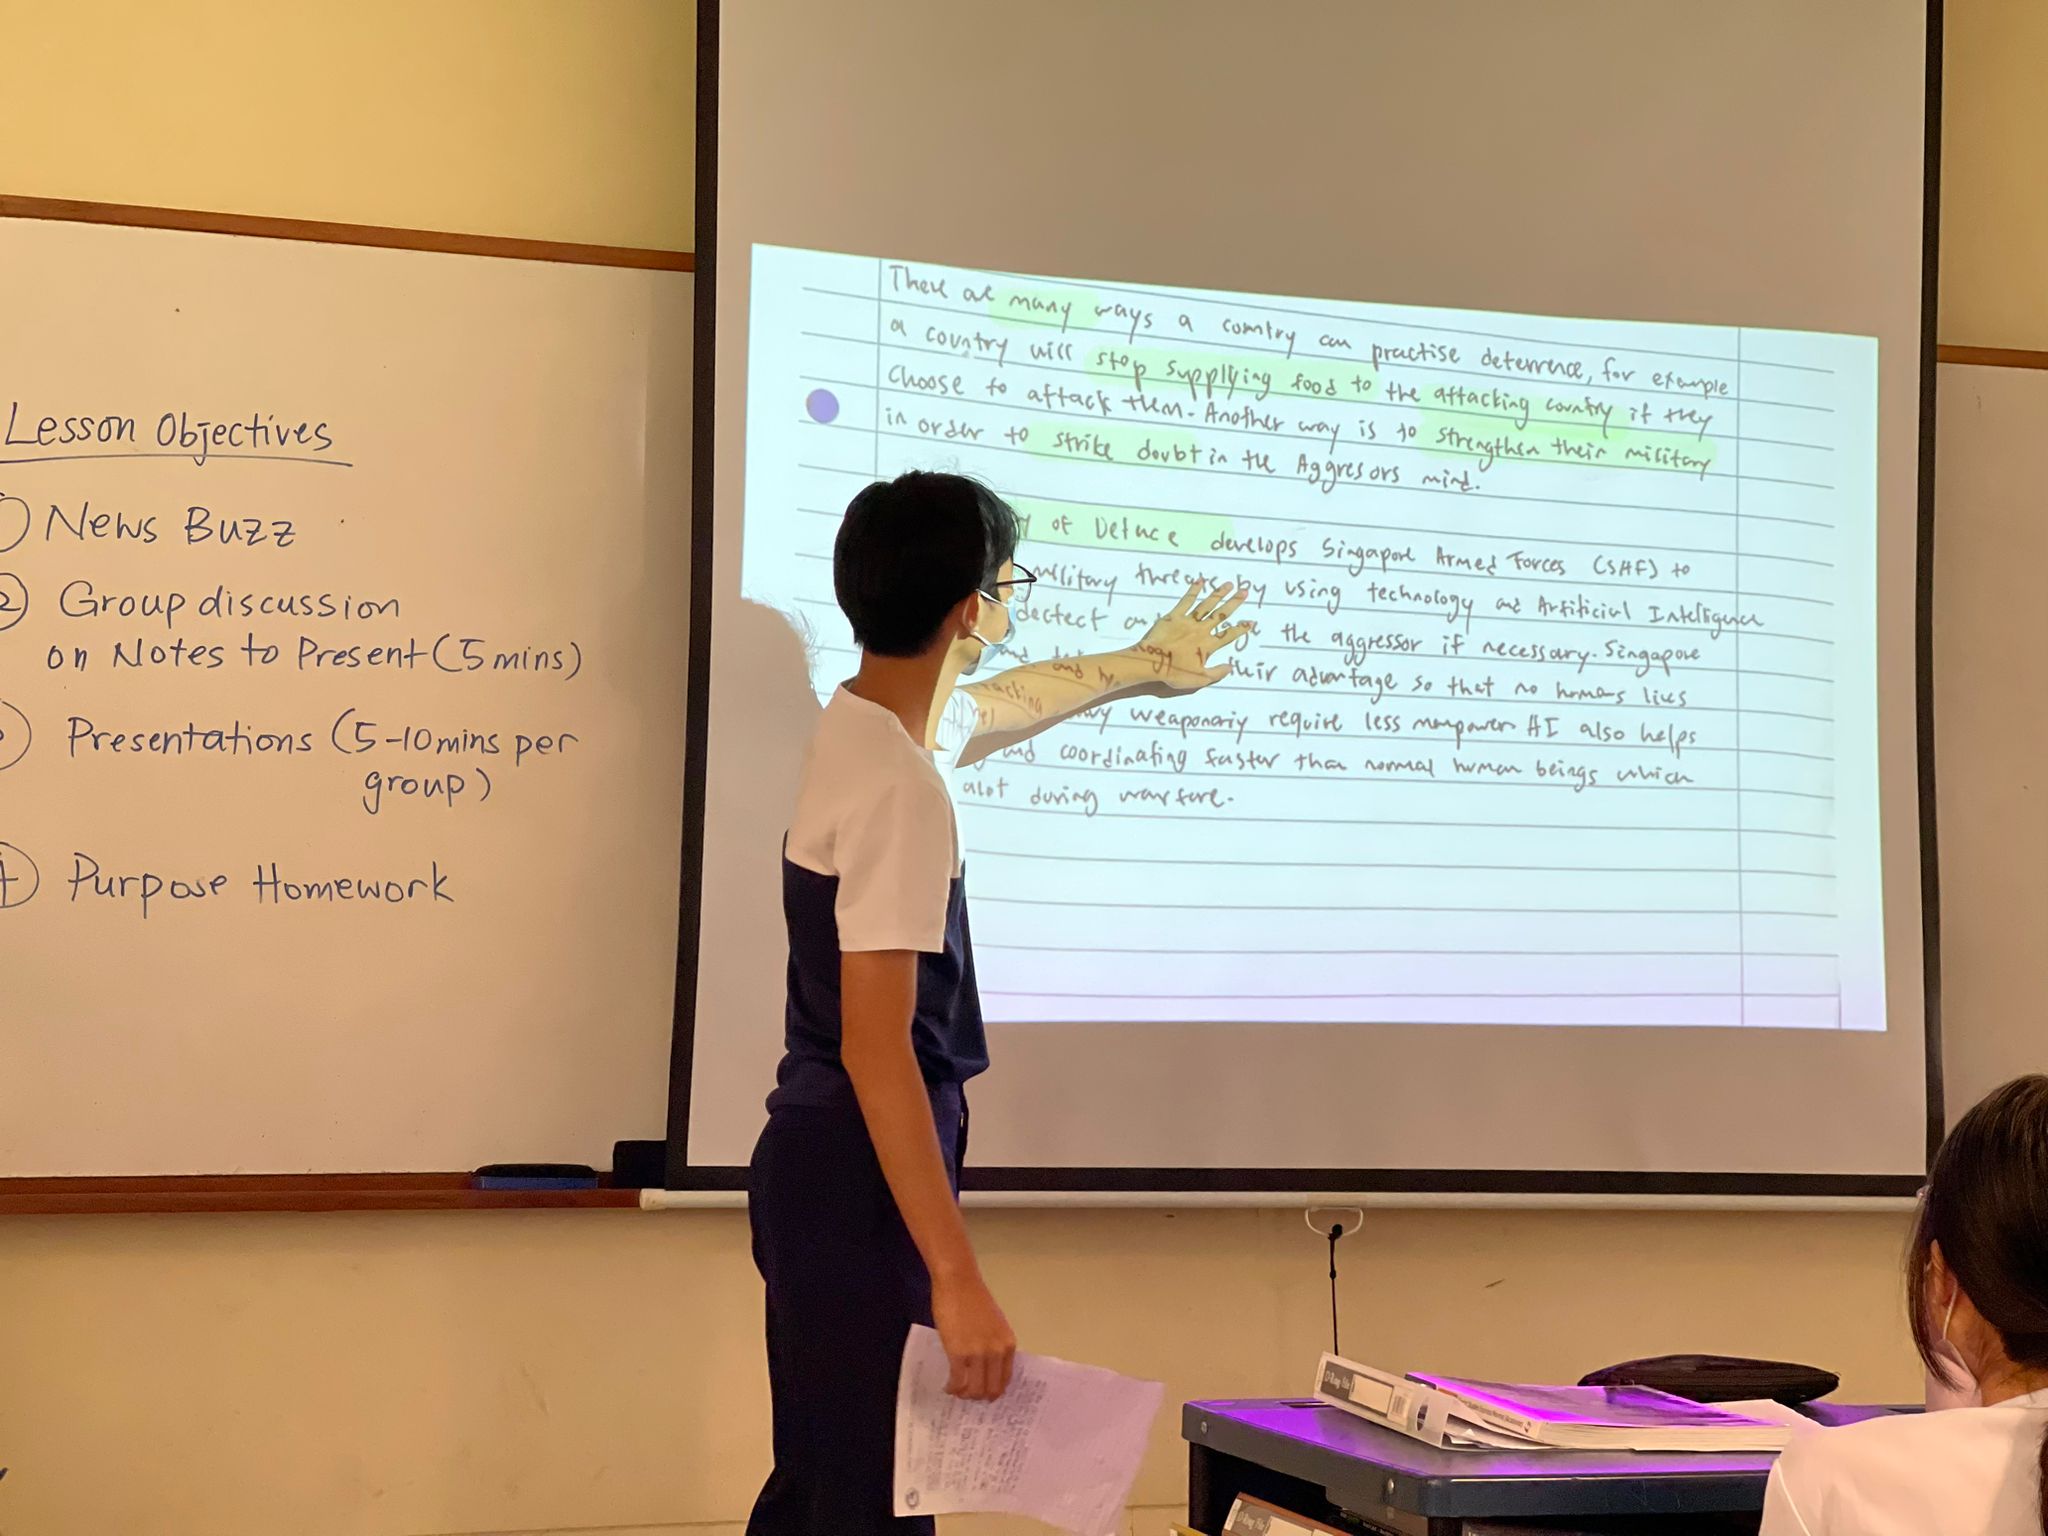 Lesson Objectives
News Buzz
2 Group discussion
on Notes to Present (5 mins)
Presentations (5-10 mins per
group)
Purpose Homework
There are many ways a country can practise deterrence, for example
a country will stop supplying food to the attacking country if they
Choose to attack them. Another way is to strengthen their military
in order to strike doubt in the Aggresors mind.
of Defence develops Singapore Armed Forces (SAF) to
military threats by using technology and Artificial Intelligence
dectect the aggressor if necessary. Singapore
their advantage so that no humans lives
weaponariy require less manpower AI also helps
and coordinating faster than normal human beings which
alot during warfare.